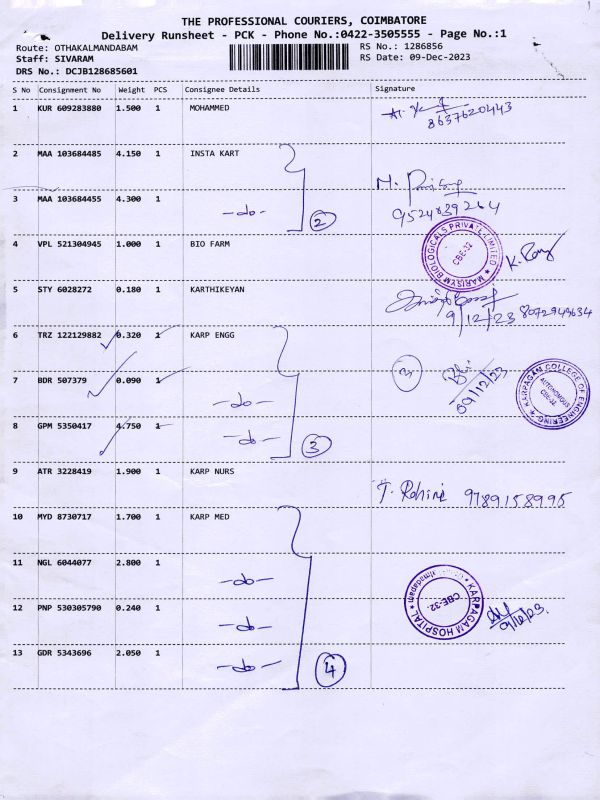 THE PROFESSIONAL COURIERS, COIMBATORE
Delivery Runsheet - PCK - Phone No.:0422-3505555 - Page No.:1
Route: OTHAKALMANDABAM
Staff: SIVARAM
DRS No.: DCJB128685601
RS No.: 1286856
RS Date: 09-Dec-2023
S No Consignment No Weight PCS Consignee Details Signature
1 KUR 609283880 1.500 1 MOHAMMED
8637620443
2 MAA 103684485 4.150 1 INSTA KART
3 MAA 103684455 4.300 1 -do- 2
9524839264
4 VPL 521304945 1.000 1 BIO FARM
MARISYM BIOLOGICALS PRIVATE LIMITED
CBE-32
5 STY 6028272 0.180 1 KARTHIKEYAN
9/12/23 8072949634
6 TRZ 122129882 0.320 1 KARP ENGG
7 BDR 507379 0.090 1 -do- 3
09/12/23
KARPAGAM COLLEGE OF ENGINEERING
AUTONOMOUS
CBE-32
8 GPM 5350417 4.750 1 -do- 3
9 ATR 3228419 1.900 1 KARP NURS T. Rohini 9789158995
10 MYD 8730717 1.700 1 KARP MED
11 NGL 6044077 2.800 1 -do-
KARPAGAM HOSPITAL
CBE-32
12 PNP 530305790 0.240 1 -do- 9/12/23.
13 GDR 5343696 2.050 1 -do- 4